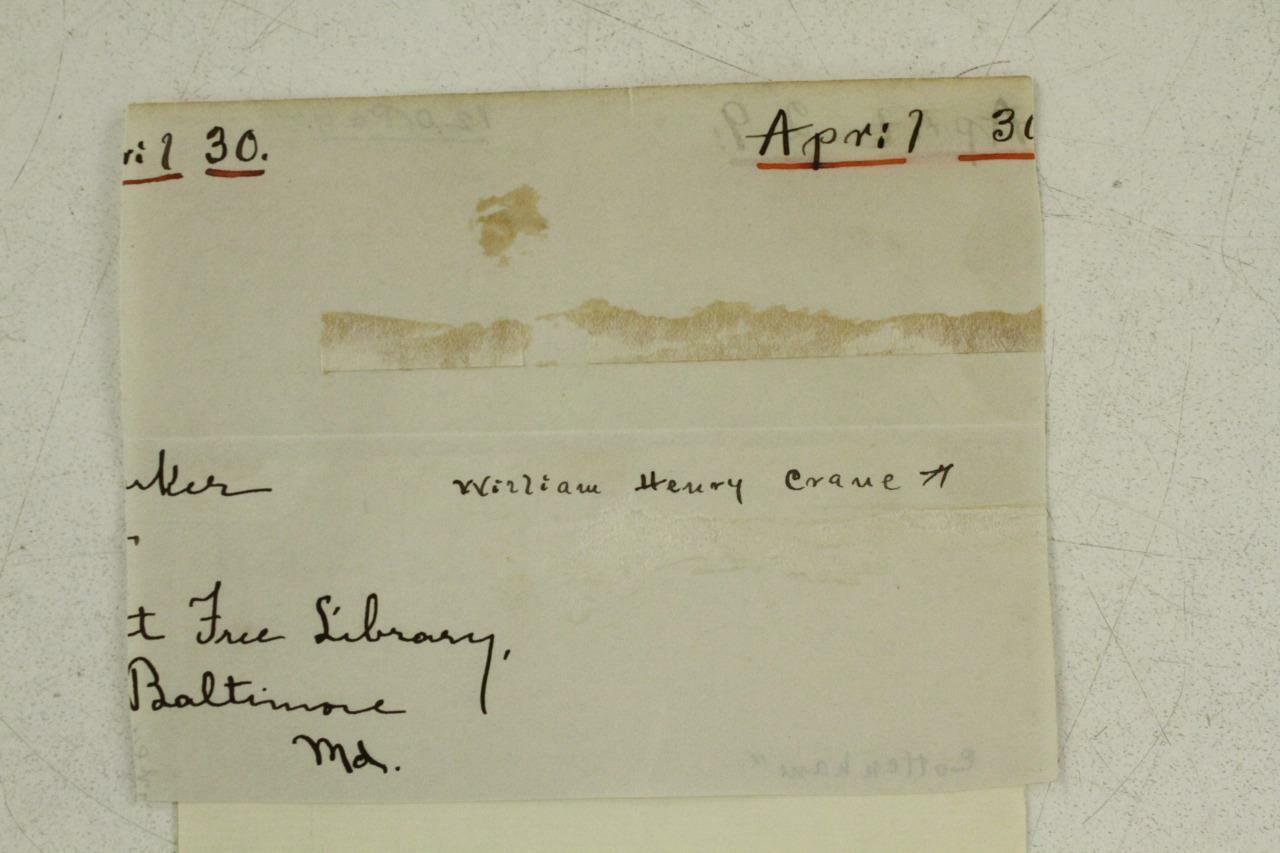 ri1 30.
April 30
ker
William Henry Crane
t Free Library,
Baltimore
Md.